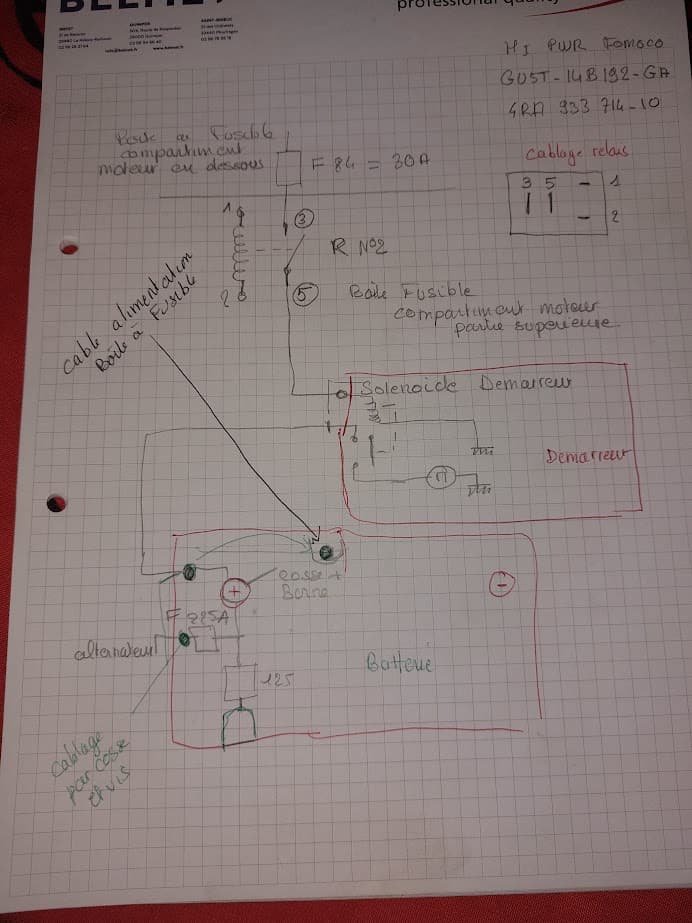 professional quality
info@belmet.fr
www.belmet.fr
HI PWR FOMOCO
GU5T-14B192-GA
4RA 933 714-10
Fusible
compartiment
moteur en dessous
F 84 = 30A
Cablage relais
3 5 - 1
- 2
1
3
R N°2
2
5
Boite Fusible
compartiment moteur
partie superieure
cable alimentation
Boîte à Fusible
Solenoide Demarreur
Demarreur
M
cosse +
Borne
+
-
F 225A
alternateur
125
Batterie
Cablage
par cosse
et vis